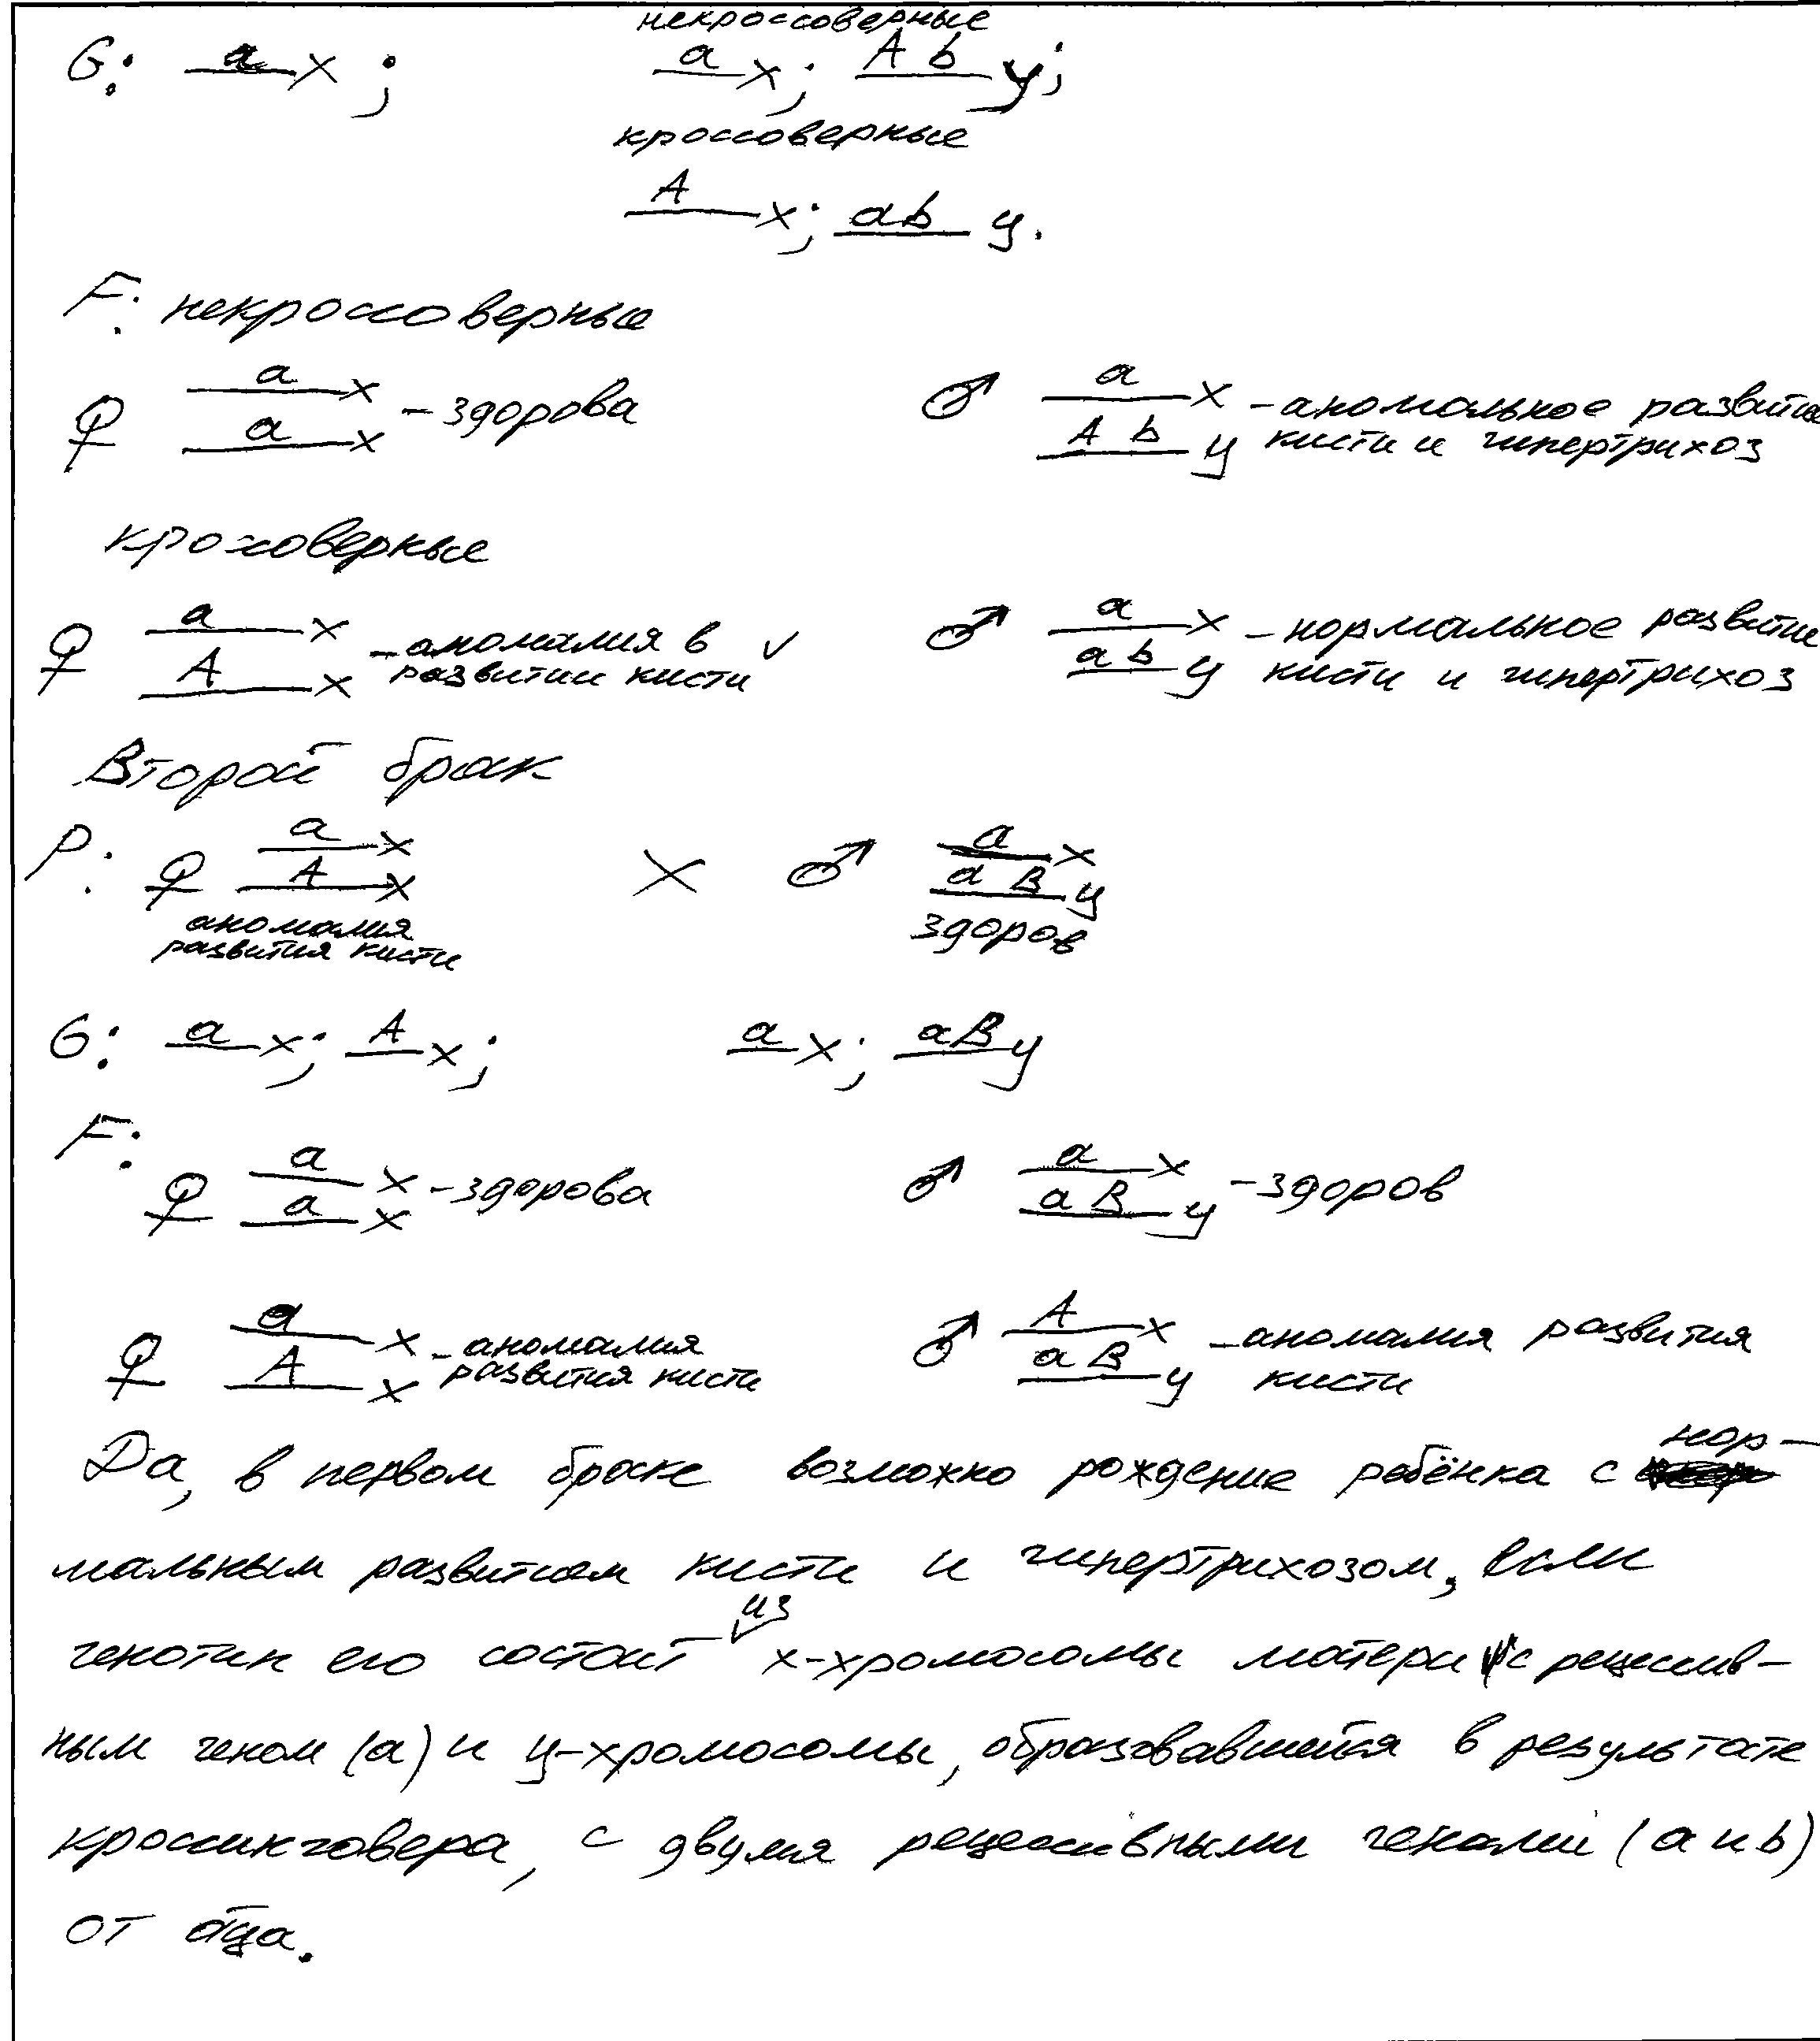 некроссоверные
G: a x ; a x ; A b y ;
кроссоверные
A x ; ab y .
F: некроссоверные
♀ a x a x - здорова ♂ a x A b y - аномальное развитие
кисти и гипертрихоз
кроссоверные
♀ a x A x - аномалия в ✓ ♂ a x ab y - нормальное развитие
развитии кисти кисти и гипертрихоз
Второй брак
P: ♀ a x A x × ♂ a x a B y
аномалия здоров
развития кисти
G: a x ; A x ; a x ; aB y
F:
♀ a x a x - здорова ♂ a x a B y - здоров
♀ a x A x - аномалия ♂ A x a B y - аномалия развития
развития кисти кисти
Да, в первом браке возможно рождение ребёнка с нор-
мальным развитием кисти и гипертрихозом, если
генотип его состоит из х-хромосомы матери с рецессив-
ным геном (a) и у-хромосомы, образовавшейся в результате
кроссинговера, с двумя рецессивными генами (a и b)
от отца.